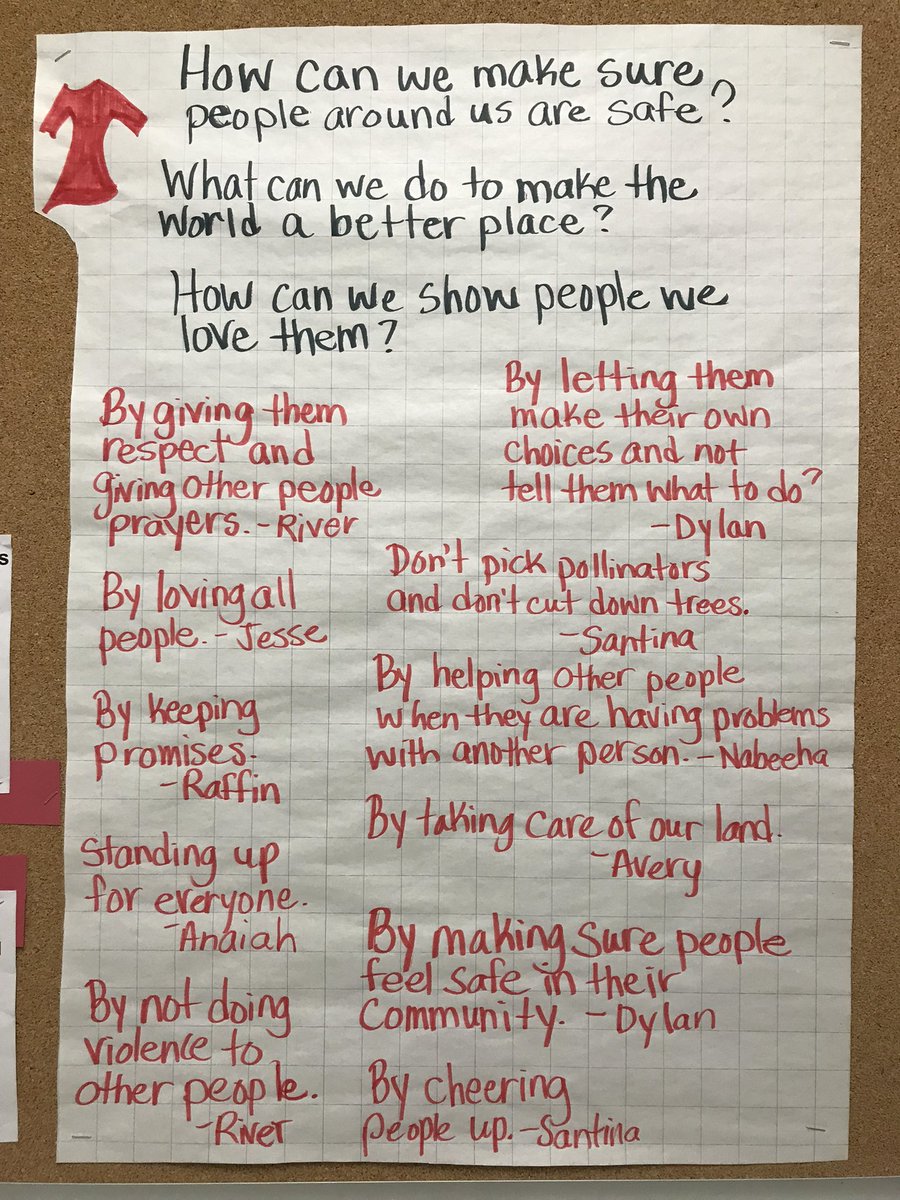 How can we make sure
people around us are safe?
What can we do to make the
world a better place?
How can we show people we
love them?
By giving them
respect and
giving other people
prayers. - River
By loving all
people. - Jesse
By keeping
promises.
- Raffin
Standing up
for everyone.
- Anaiah
By not doing
violence to
other people.
- River
By letting them
make their own
choices and not
tell them what to do?
- Dylan
Don't pick pollinators
and don't cut down trees.
- Santina
By helping other people
when they are having problems
with another person. - Nabeeha
By taking care of our land.
- Avery
By making sure people
feel safe in their
Community. - Dylan
By cheering
people up. - Santina
s